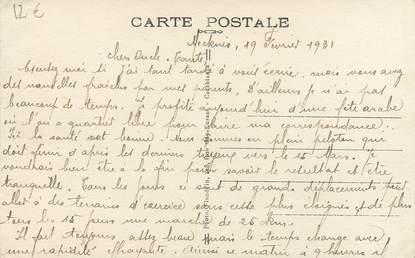 12 €
CARTE POSTALE
Mecknès, 19 Février 1931
chers Oncle, Tante
Excusez moi si j'ai tant tardé à vous écrire, mais vous avez
des nouvelles fraîches par mes parents. D'ailleurs je n'ai pas
beaucoup de temps. Je profite aujourd'hui d'une fête arabe
où l'on a quartier libre pour faire ma correspondance.
Ici la santé est bonne. Nous sommes en plein peloton qui
doit finir d'après les derniers vers le 15 Mars. Je
voudrais bien être à la fin pour savoir le résultat et être
tranquille. Tous les jours ce sont de grands déplacements pour
aller à des terrains d'exercice sans cesse plus éloignés, et de plus
tous les 15 jours une marche de 25 km.
Il fait toujours assez beau mais le temps change avec
une rapidité effrayante. Ainsi ce matin à 9 heures il